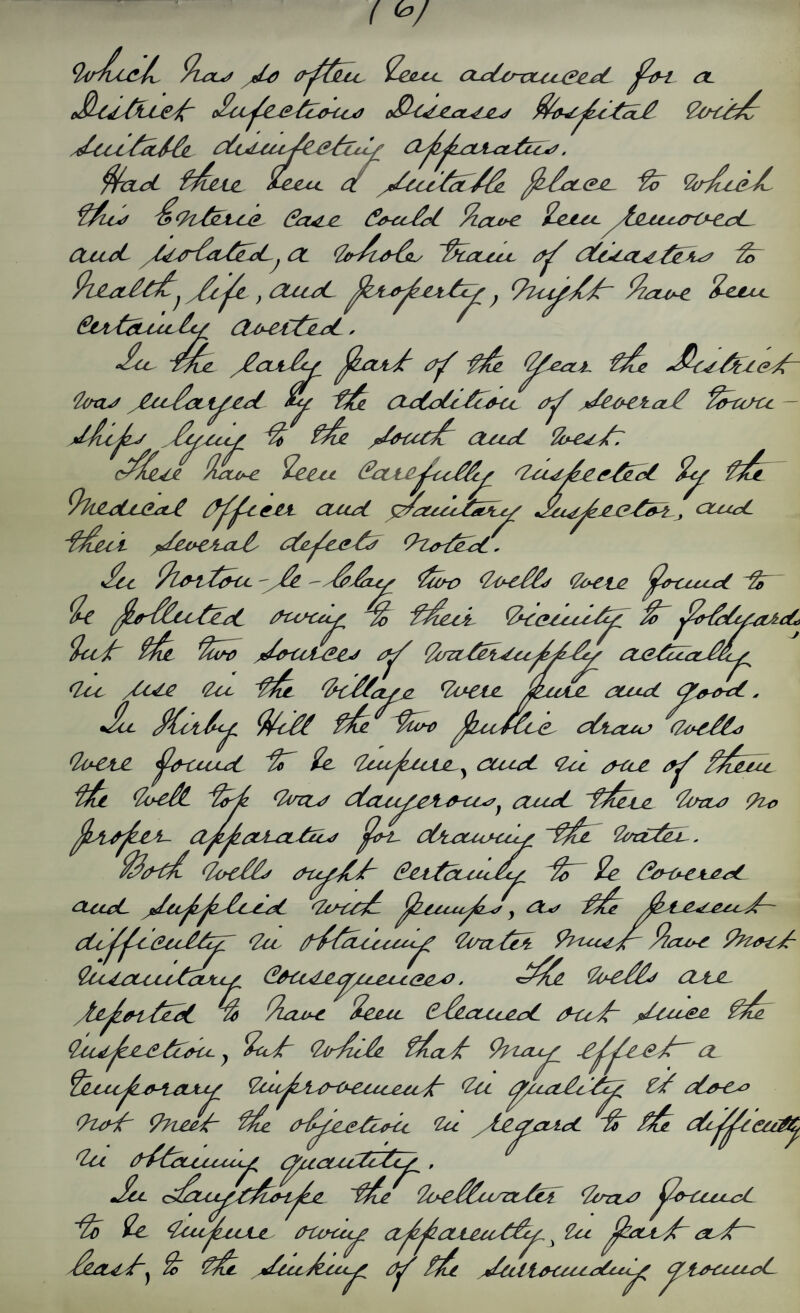 (6)
which has so often been advanced for a
District Infectious Diseases Hospital with
suitable disinfecting apparatus.
Had there been a suitable place to which
this Enteric Case could have been removed
and isolated, a whole train of disasters to
health, life, and property, might have been
certainly averted.
In the early part of the Year the District
was enlarged by the addition of several town-
ships lying to the south and west.
These have been carefully inspected by the
Medical Officer and Sanitary Inspector, and
their several defects noted.
In Norton-le-Clay two wells were found to
be polluted owing to their vicinity to foldyards
but the two sources of watersupply actually
in use in the village were pure and good.
In Kirby Hill the two public draw wells
were found to be impure, and in one of them
the well top was dangerous, and there was no
proper apparatus for drawing the water.
Both wells ought certainly to be covered
and supplied with pumps, as the present
difficulty in obtaining water must have most
insanitary consequences. The wells are
reported to have been cleaned out since the
inspection, but while that may effect a
temporary improvement in quality it does
not meet the objection in regard to the difficulty
in obtaining quantity.
In Langthorpe the wellwater was found
to be impure owing apparently, in part at
least, to the sinking of the surrounding ground